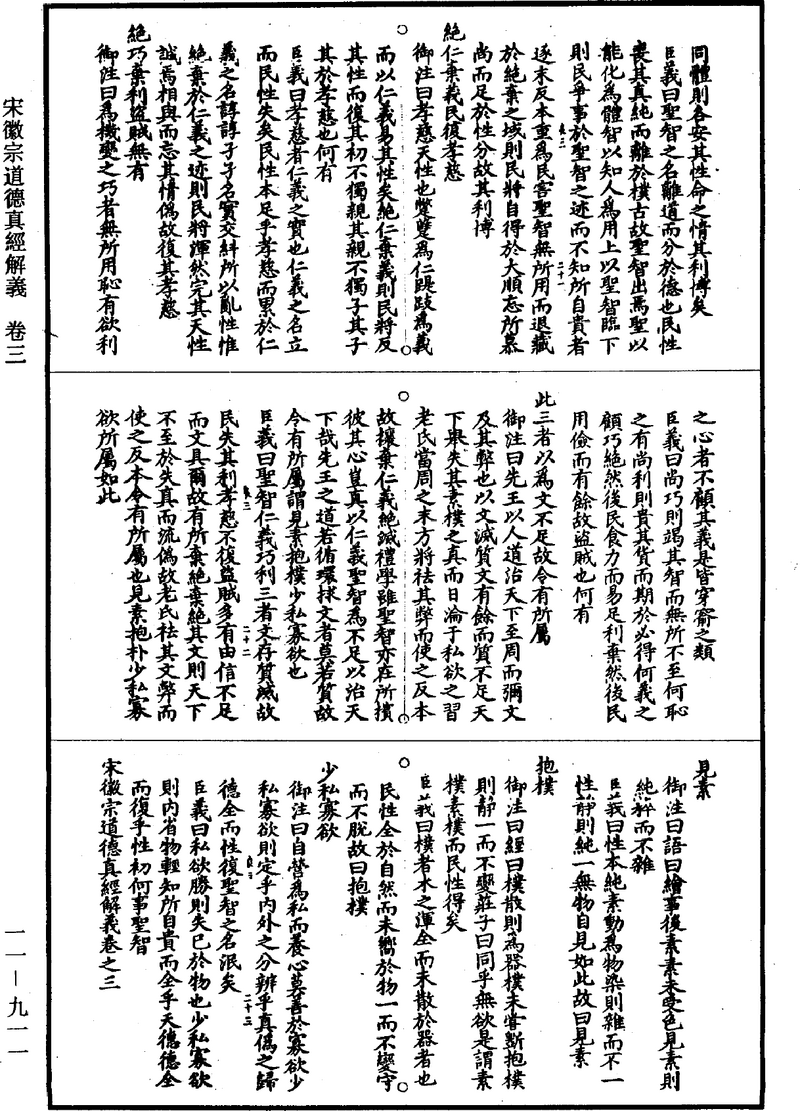 宋徽宗道德真經解義　卷三
同體則各安其性命之情其利博矣
臣義曰聖智之名離道而分於德也民性
喪其真純而離於樸古故聖智出焉聖以
能化為體智以知人為用上以聖智臨下
則民爭事於聖智之迹而不知所自貴者
卷三　二十一
逐末反本重為民害聖智無所用而退藏
於絶棄之域則民將自得於大順忘所慕
尚而足於性分故其利博
絶仁棄義民復孝慈
御注曰孝慈天性也蹩躠為仁踶跂為義
而以仁義易其性矣絶仁棄義則民將反
其性而復其初不獨親其親不獨子其子
其於孝慈也何有
臣義曰孝慈者仁義之實也仁義之名立
而民性失矣民性本足乎孝慈而累於仁
義之名諄諄孑孑名實交糾所以亂性惟
絶棄於仁義之迹則民將渾然完其天性
誠焉相與而忘其情僞故復其孝慈
絶巧棄利盜賊無有
御注曰為機變之巧者無所用恥有欲利
之心者不顧其義是皆穿窬之類
臣義曰尚巧則竭其智而無所不至何恥
之有尚利則貴其貨而期於必得何義之
顧巧絶然後民食力而易足利棄然後民
用儉而有餘故盜賊也何有
此三者以為文不足故令有所屬
御注曰先王以人道治天下至周而彌文
及其弊也以文滅質文有餘而質不足天
下舉失其素樸之真而日淪于私欲之習
老氏當周之末方將祛其弊而使之反本
故攘棄仁義絶滅禮學雖聖智亦在所擯
彼其心豈真以仁義聖智為不足以治天
下哉先王之道若循環捄文者莫若質故
令有所屬謂見素抱樸少私寡欲也
臣義曰聖智仁義巧利三者文存質滅故
卷三　二十二
民失其利孝慈不復盜賊多有由信不足
而文具爾故有所棄絶棄絶其文則天下
不至於失真而流僞故老氏祛其文弊而
使之反本令有所屬也見素抱朴少私寡
欲所屬如此
見素
御注曰語曰繪事後素素未受色見素則
純粹而不雜
臣義曰性本純素動為物染則雜而不一
性靜則純一無物自見如此故曰見素
抱樸
御注曰經曰樸散則為器樸未嘗斲抱樸
則靜一而不變莊子曰同乎無欲是謂素
樸素樸而民性得矣
臣義曰樸者木之渾全而未散於器者也
民性全於自然而未嚮於物一而不變守
而不脫故曰抱樸
少私寡欲
御注曰自營為私而養心莫善於寡欲少
私寡欲則定乎內外之分辨乎真僞之歸
卷三　二十三
德全而性復聖智之名泯矣
臣義曰私欲勝則失已於物也少私寡欲
則內省物輕知所自貴而全乎天德德全
而復乎性初何事聖智
宋徽宗道德真經解義卷之三
一一－九一一